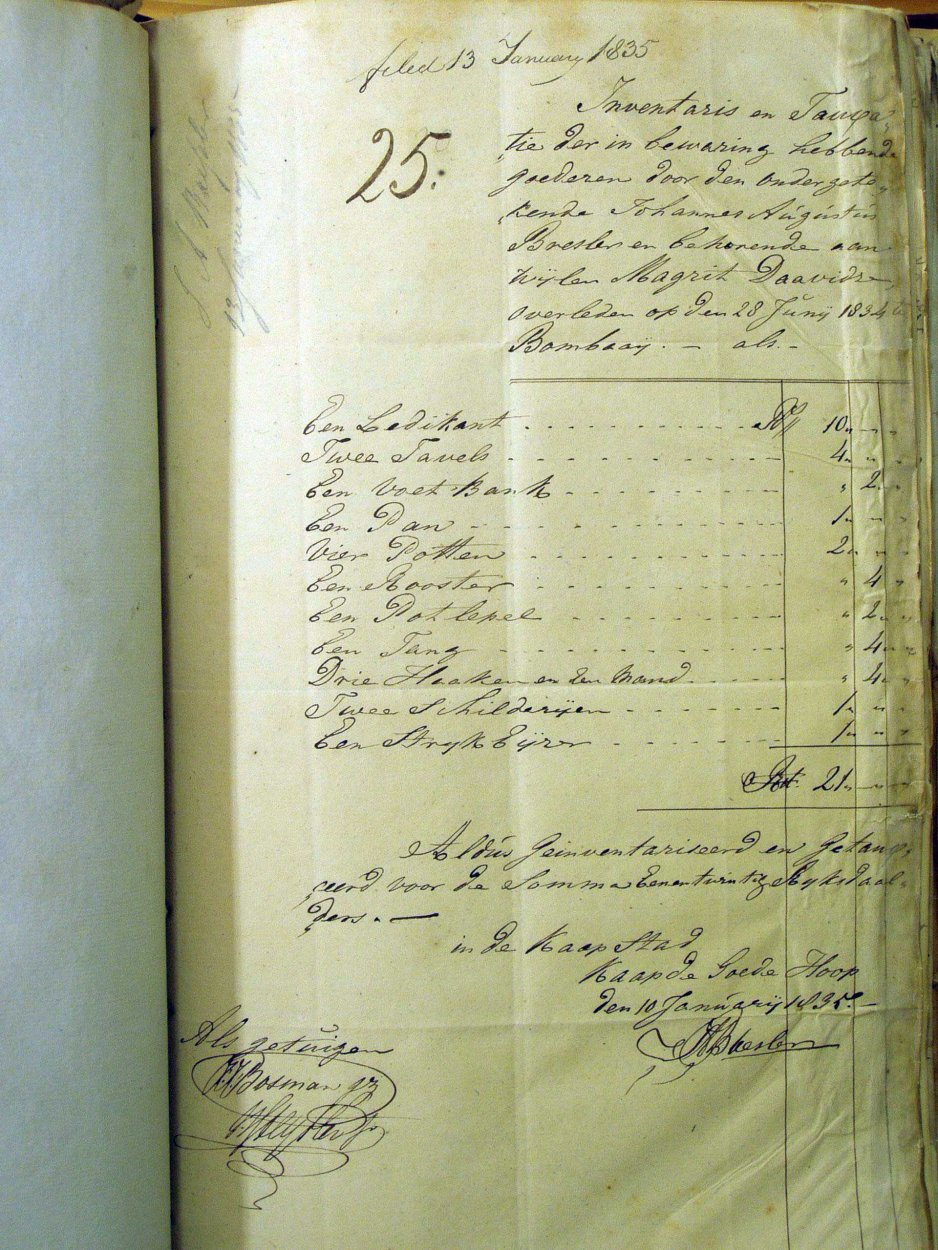 filed 13 January 1835
25.
Inventaris en Tauxa„
„tie der in bewaring hebbende
goederen door den ondergete„
„kende Johannes Augustus
Bresler en behorende aan
wylen Magrit Daavids
overleden op den 28 Junij 1834 te
Bombaaij. — als. —
Een Ledikant . . . . Rds 10„ „ „
Twee Tavels . . . . 4„ „ „
Een Voet Bank . . . . „ 2„ „
Een Pan . . . . 1„ „ „
Vier Potten . . . . 2„ „ „
Een Rooster . . . . „ 4 „
Een Pot lepel . . . . „ 2„ „
Een Tang . . . . „ 4„ „
Drie Haaken en een Mand . . . . „ 4„ „
Twee Schilderijen . . . . 1„ „ „
Een Stryk Eijzer . . . . 1„ „ „
Rds. 21„ „ „
Aldus Geinventariseerd en Getaux„
„eerd voor de Somma Eenentwintig Ryksdaal„
ders. —
in de Kaap Stad
Kaap de Goede Hoop
den 10 Januarij 1835. —
Bresler
Als getuigen
Bosman